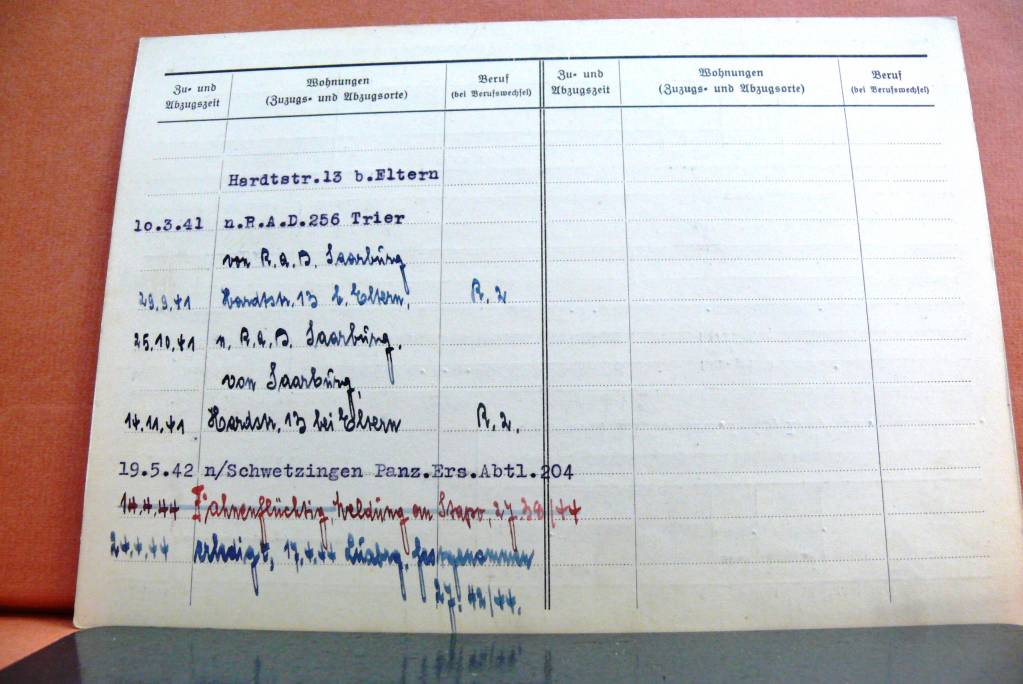 Zu- und Abzugszeit
Wohnungen
(Zuzugs- und Abzugsorte)
Beruf
(bei Berufswechsel)
Zu- und Abzugszeit
Wohnungen
(Zuzugs- und Abzugsorte)
Beruf
(bei Berufswechsel)
Hardtstr.13 b.Eltern
10.3.41 n.R.A.D.256 Trier
von R.a.D. Saarburg
29.9.41 Hardtstr. 13 b. Eltern, R. 2
25.10.41 n. R.a.D. Saarburg.
von Saarburg
14.11.41 Hardstr. 13 bei Eltern R. 2.
19.5.42 n/Schwetzingen Panz.Ers.Abtl.204
14.4.44 Fahnenflüchtig, Meldung an Stapo, 27.38/44
24.4.44 erledigt, 17.4.44 festgenommen
27. 42/44.